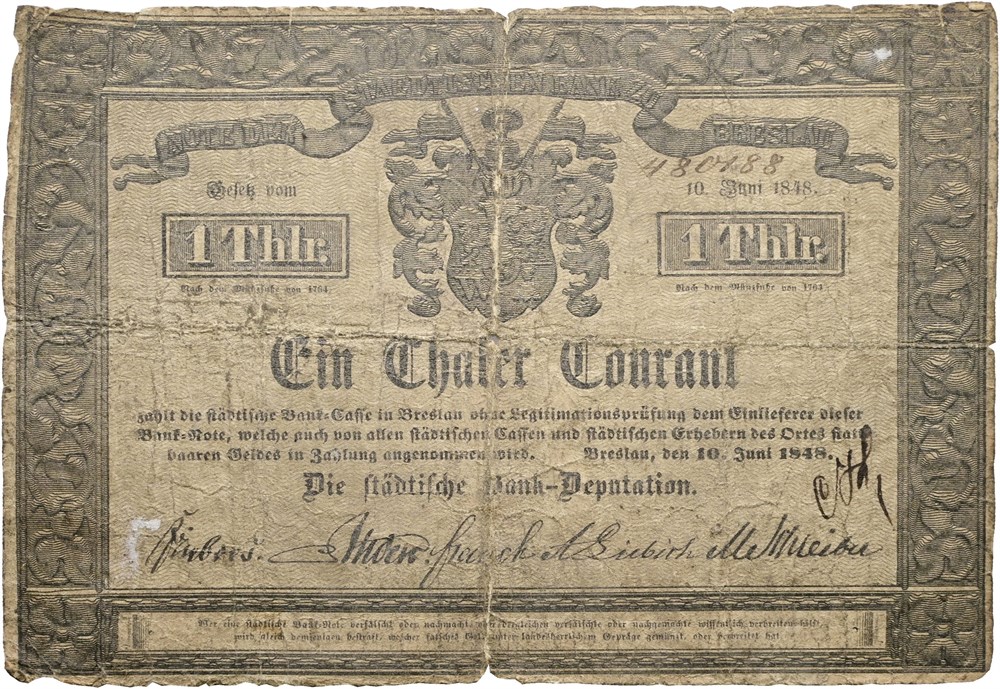 NOTE DER STAEDTISCHEN BANK ZU BRESLAU
480488
Gesetz vom 10. Juni 1848.
1 Thlr. 1 Thlr.
Nach dem Münzfuße von 1764. Nach dem Münzfuße von 1764
Ein Thaler Courant
zahlt die städtische Bank-Casse in Breslau ohne Legitimationsprüfung dem Einlieferer dieser
Bank-Note, welche auch von allen städtischen Cassen und städtischen Erhebern des Ortes statt
baaren Geldes in Zahlung angenommen wird. Breslau, den 10. Juni 1848.
Die städtische Bank-Deputation.
Wer eine städtische Bank-Note verfälscht oder nachmacht, oder dergleichen verfälschte oder nachgemachte wissentlich verbreiten hilft,
wird gleich demjenigen bestraft, welcher falsches Geld unter landesherrlichem Gepräge gemünzt, oder verbreitet hat.